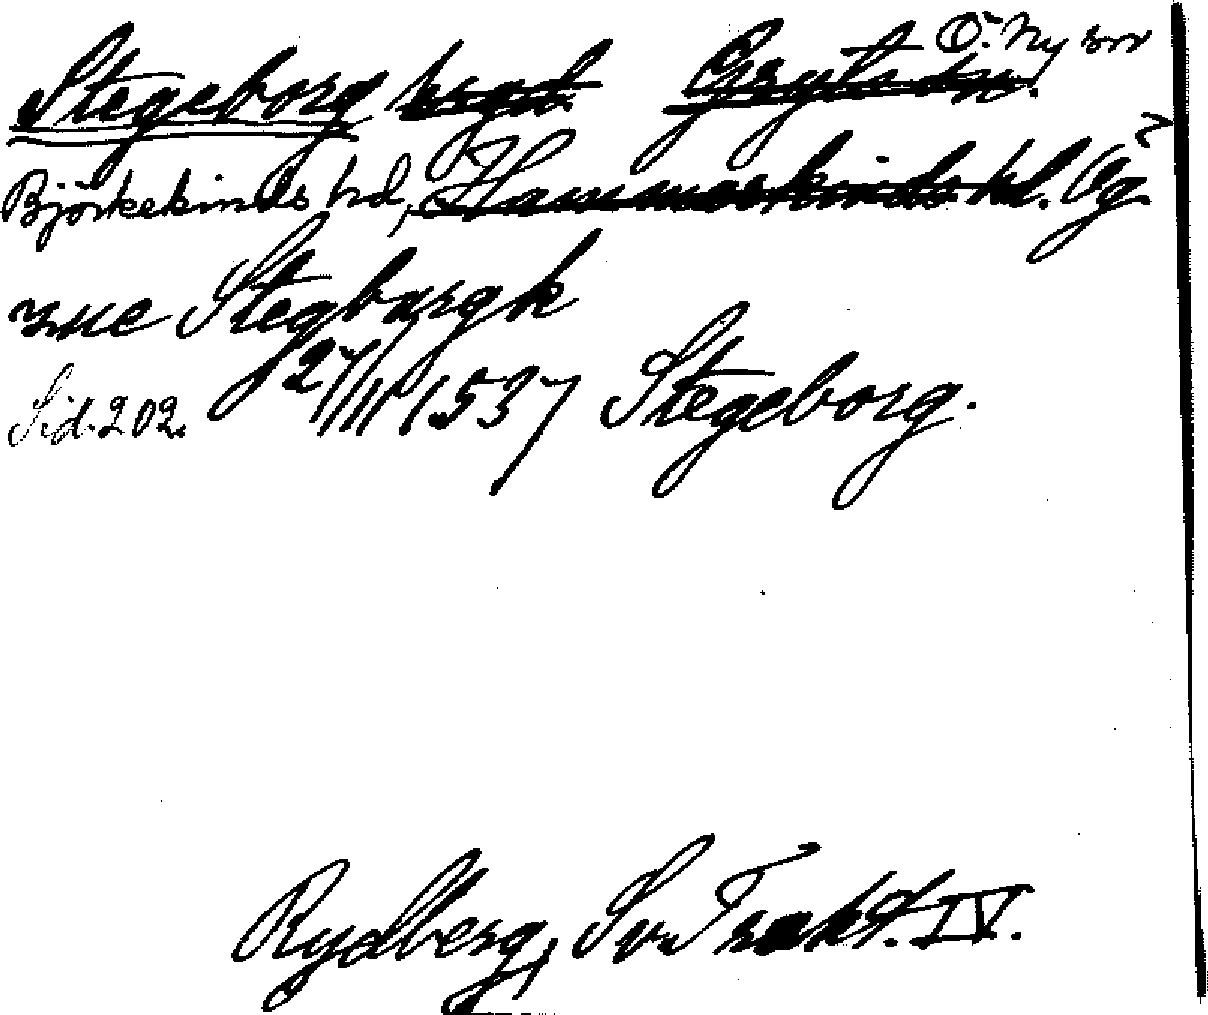 Stegeborg krgd. Gryts sn. Ö. Ny snn
Björkekinds hd, Hammarkinds hd. Ög.
zue Stegburgk
Sid. 202. 27/11 1537 Stegeborg.
Rydberg, Sv. Trakt. IV.